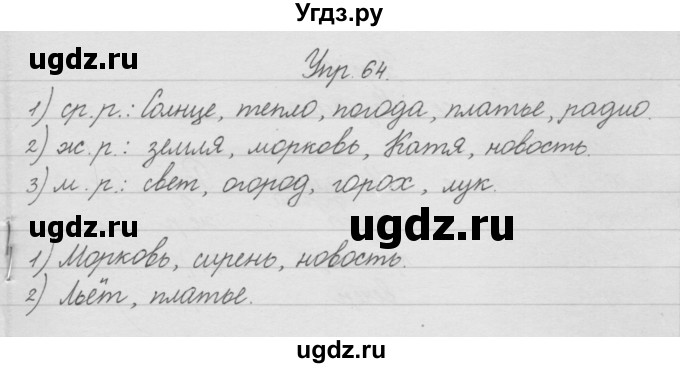 Угдз.ру
ugdz.ru
ugdz.ru
Упр. 64.
1) ср.р.: Солнце, тепло, погода, платье, радио.
2) ж.р.: земля, морковь, Катя, новость.
ugdz.ru
3) м.р.: свет, огород, горох, лук.
ugdz.ru
ugdz.ru
1) Морковь, сирень, новость.
2) Льёт, платье.
ugdz.ru
ugdz.ru